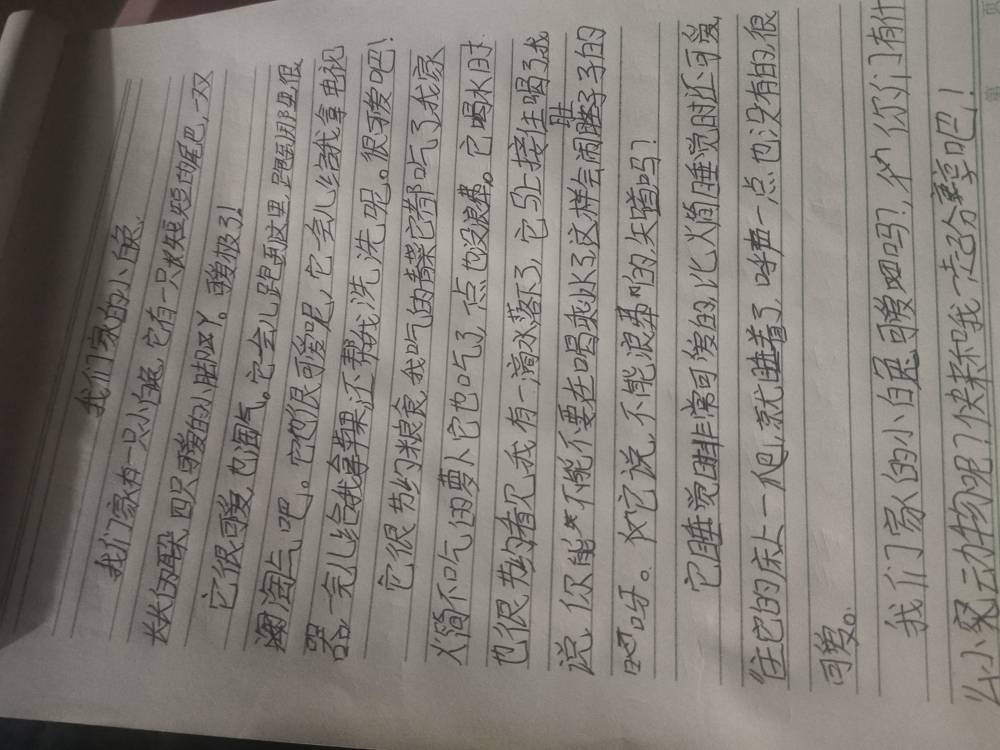 我们家的小白兔
我们家有一只小白兔，它有一只火短短的尾巴，一双
长长的耳朵，四只可爱的小脚丫。可爱极了！
它很可爱，也淘气。它一会儿跑到这里，跑到那里，很
淘气吧。它也很可爱呢，它会儿给我拿电视
器，一完儿给我拿苹果，还帮我洗洗呢。很可爱吧！
它很节约粮食，我吃的青菜它都吃了，我家
人简不吃的萝卜它也吃了，一点也没浪费。它喝水时
也很节约，看见我有一滴水落下了，它马上接住喝了，我
说，你能不能不要在喝剩水了，这样会闹肚子的
呀。对它说，不能浪费的，知道吗？
它睡觉是非常可爱的，比人简睡觉时还可爱，
往它的床上一爬，就睡着了，呼声一点也没有的，很
可爱。
我们家的小白兔可爱吧吗？，你们有什
么小家动物呢？快来和我一起分享吧！